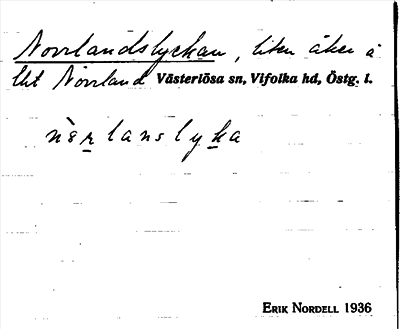 Norrlandslyckan, liten åker å
lht Norrland Västerlösa sn, Vifolka hd, Östg. l.
nèr̲lanslyk̲a
ERIK NORDELL 1936